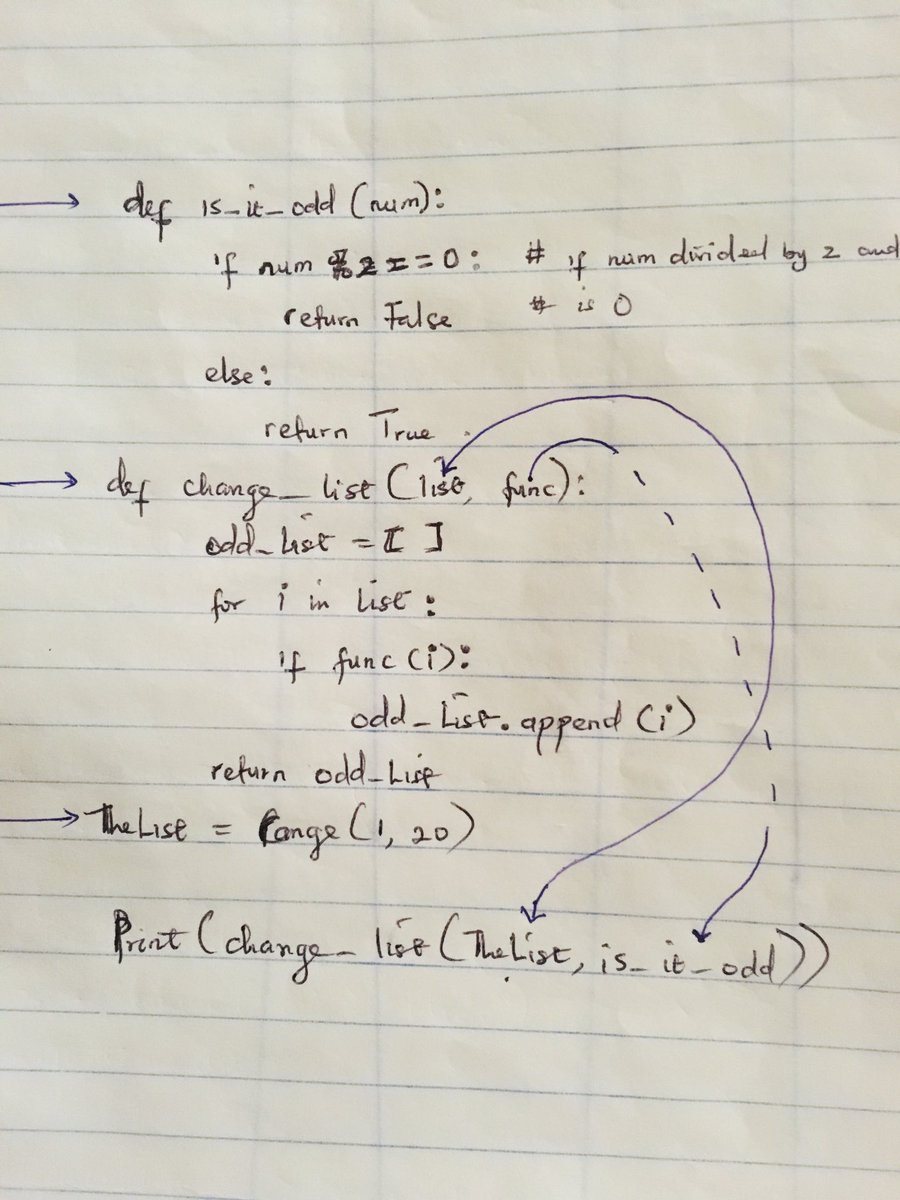 def is_it_odd (num):
if num % 2 == 0: # if num divided by 2 and
return False # is 0
else:
return True
def change_list (list, func):
odd_list = [ ]
for i in list:
if func (i):
odd_list.append (i)
return odd_list
TheList = range (1, 20)
Print (change_list (TheList, is_it_odd))